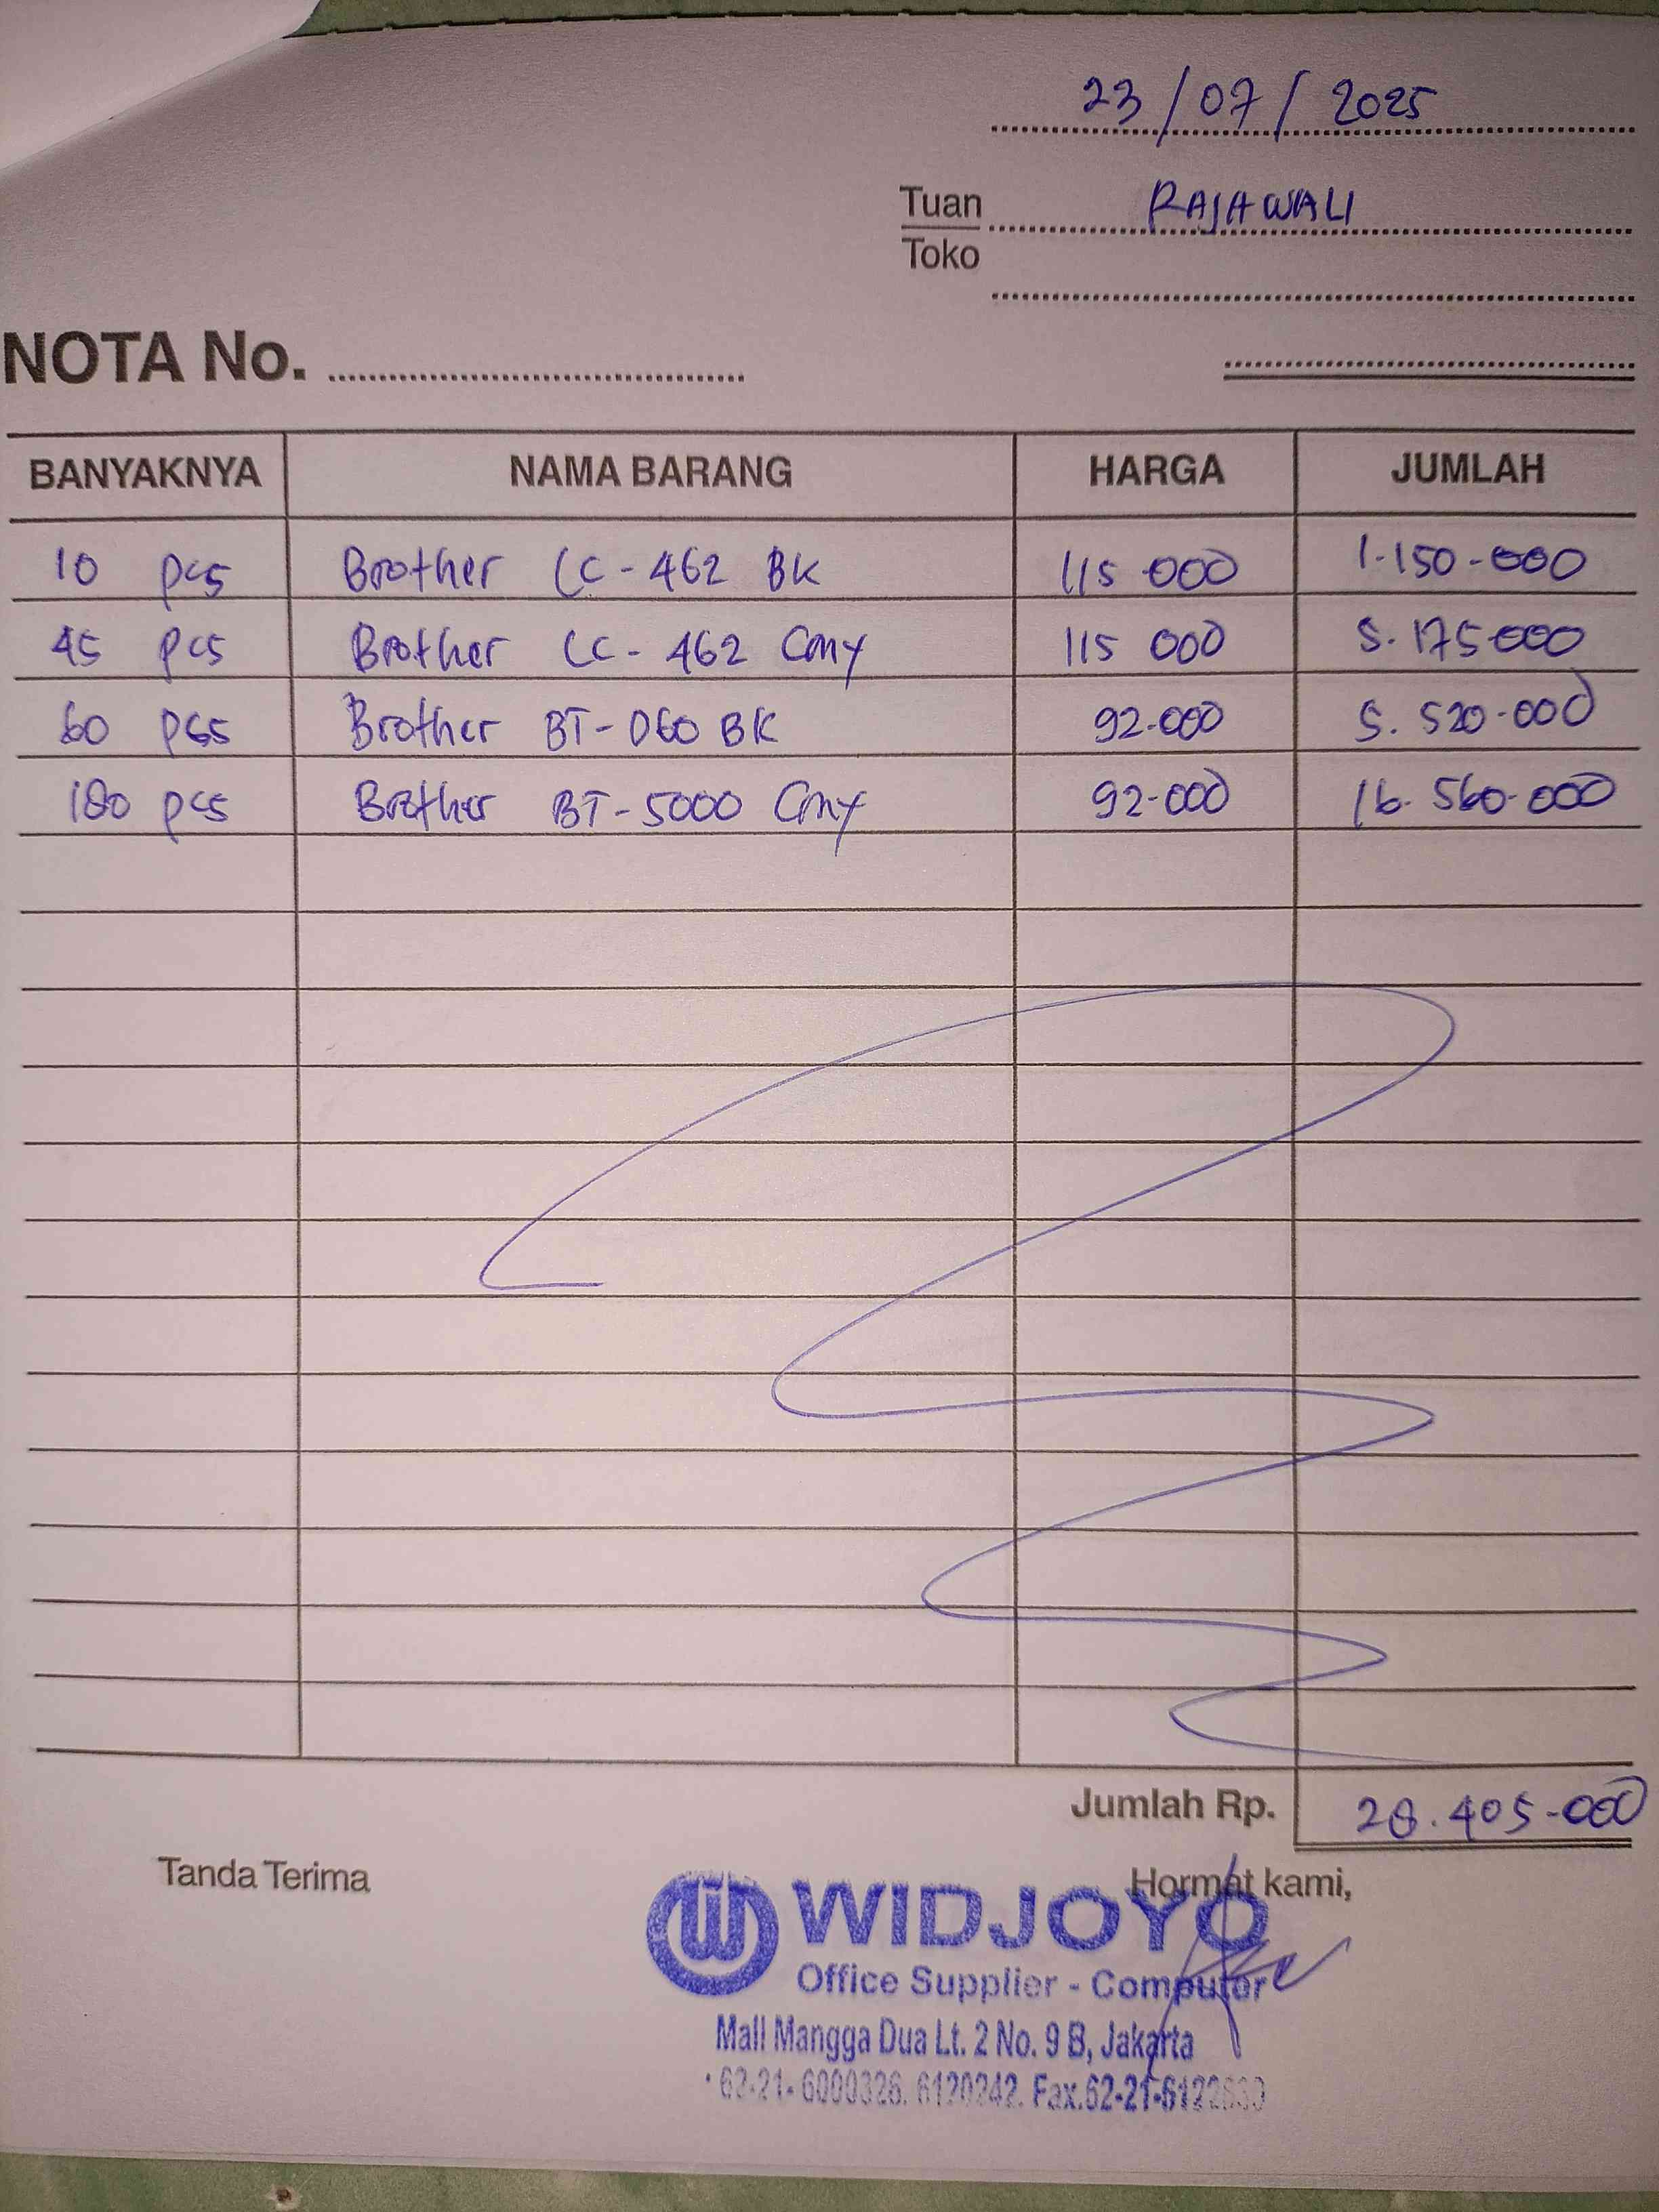 23/07/2025
Tuan RAJAWALI
Toko
NOTA No.
BANYAKNYA NAMA BARANG HARGA JUMLAH
10 pcs Brother LC-462 BK 115 000 1.150-000
45 pcs Brother LC-462 Cmy 115 000 5.175000
60 pcs Brother BT-D60 BK 92.000 5.520-000
180 pcs Brother BT-5000 Cmy 92-000 16.560-000
Jumlah Rp. 28.405-000
Tanda Terima Hormat kami,
WIDJOYO
Office Supplier - Computer
Mall Mangga Dua Lt. 2 No. 9 B, Jakarta
62-21- 6120242. Fax.